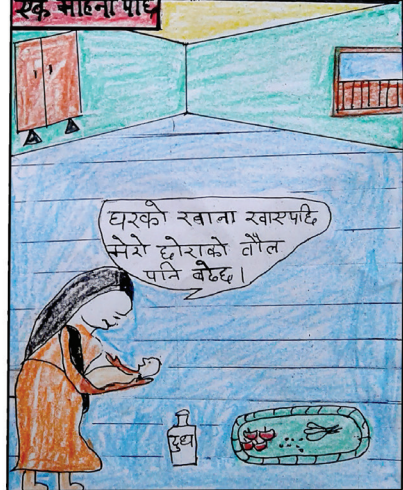 एक महिना पछि
घरको खाना खाएपछि
मेरो छोराको तौल
पनि बढेछ।
दुध